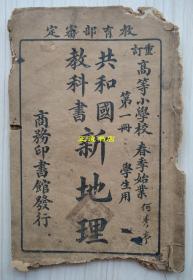 教育部審定
重訂
高等小學校
春季始業
學生用
第一冊
共和國
教科書
新地理
商務印書館發行